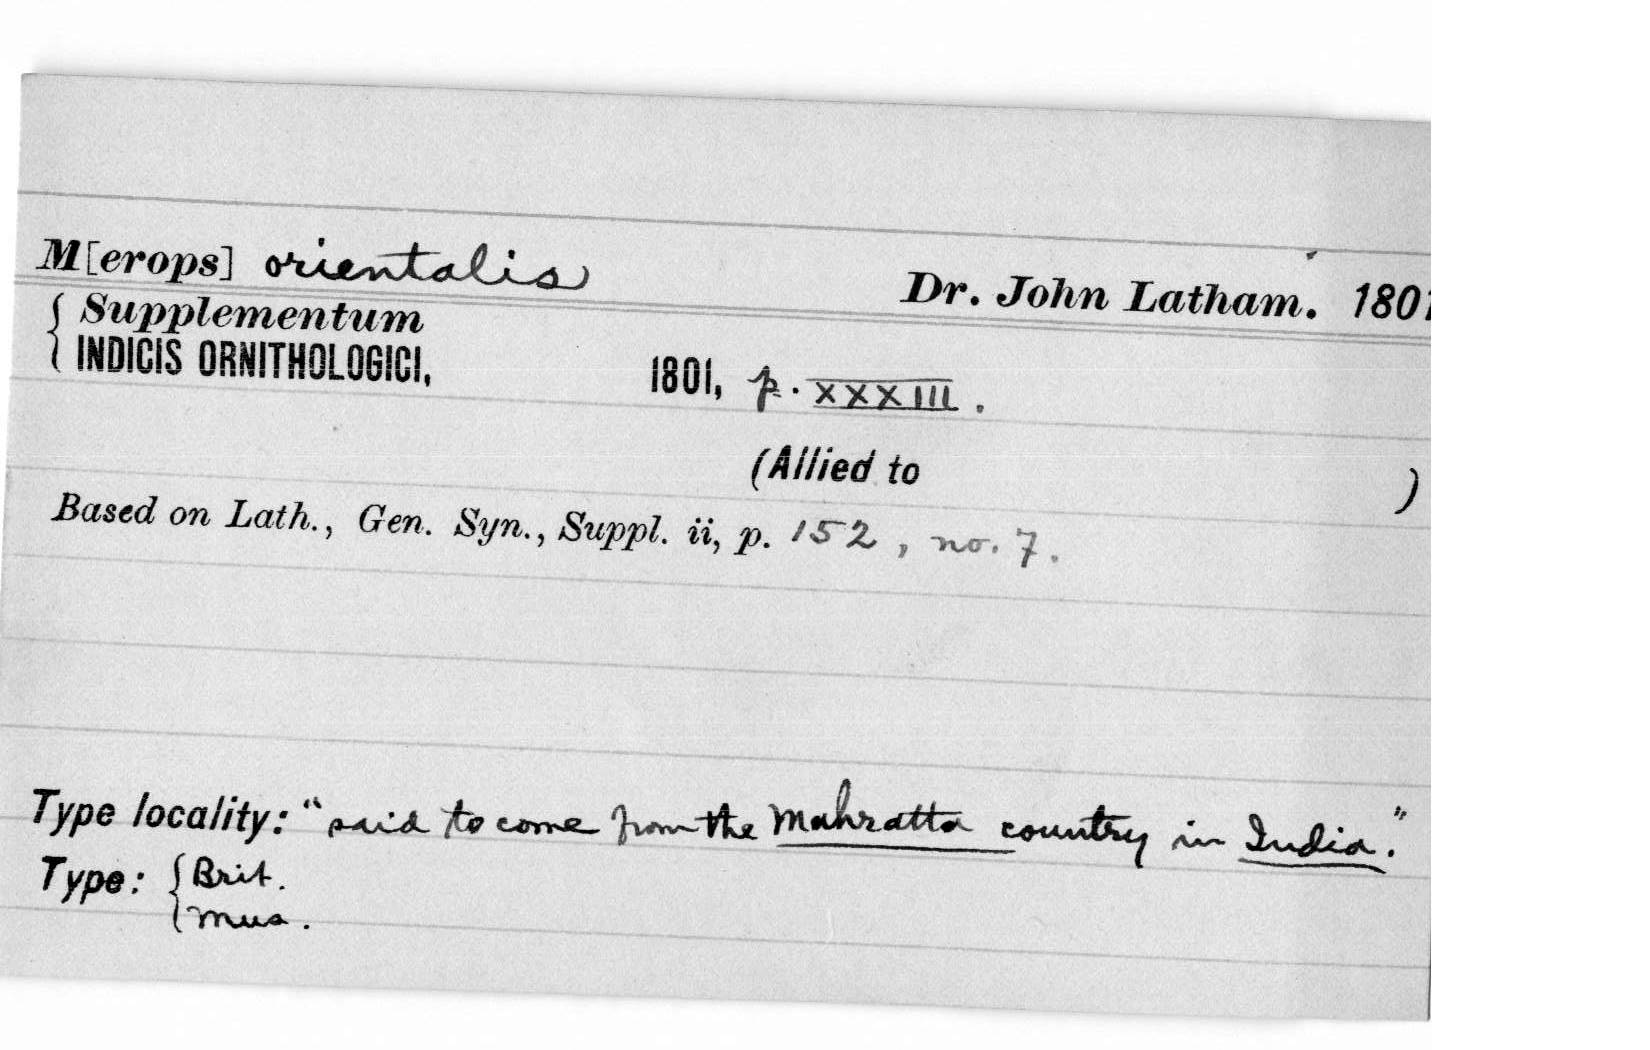 M[erops] orientalis Dr. John Latham. 1801
Supplementum
INDICIS ORNITHOLOGICI, 1801, p. XXXIII.
(Allied to )
Based on Lath., Gen. Syn., Suppl. ii, p. 152, no. 7.
Type locality: "said to come from the Mahratta country in India."
Type: { Brit.
Mus.